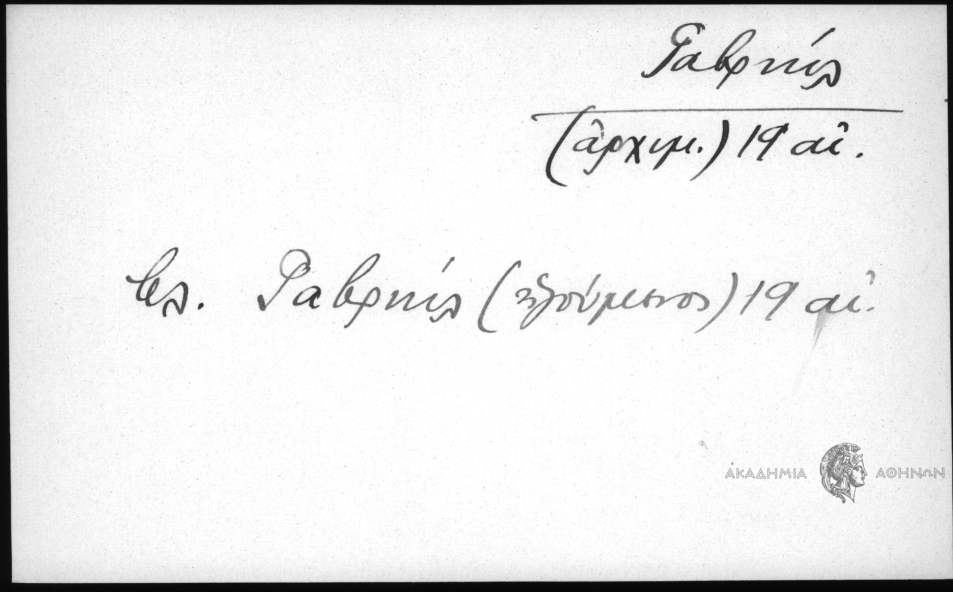 Γαβριήλ
(ἀρχιμ.) 19 αἰ.
βλ. Γαβριήλ (ἡγούμενος) 19 αἰ.
ΑΚΑΔΗΜΙΑ ΑΘΗΝΩΝ